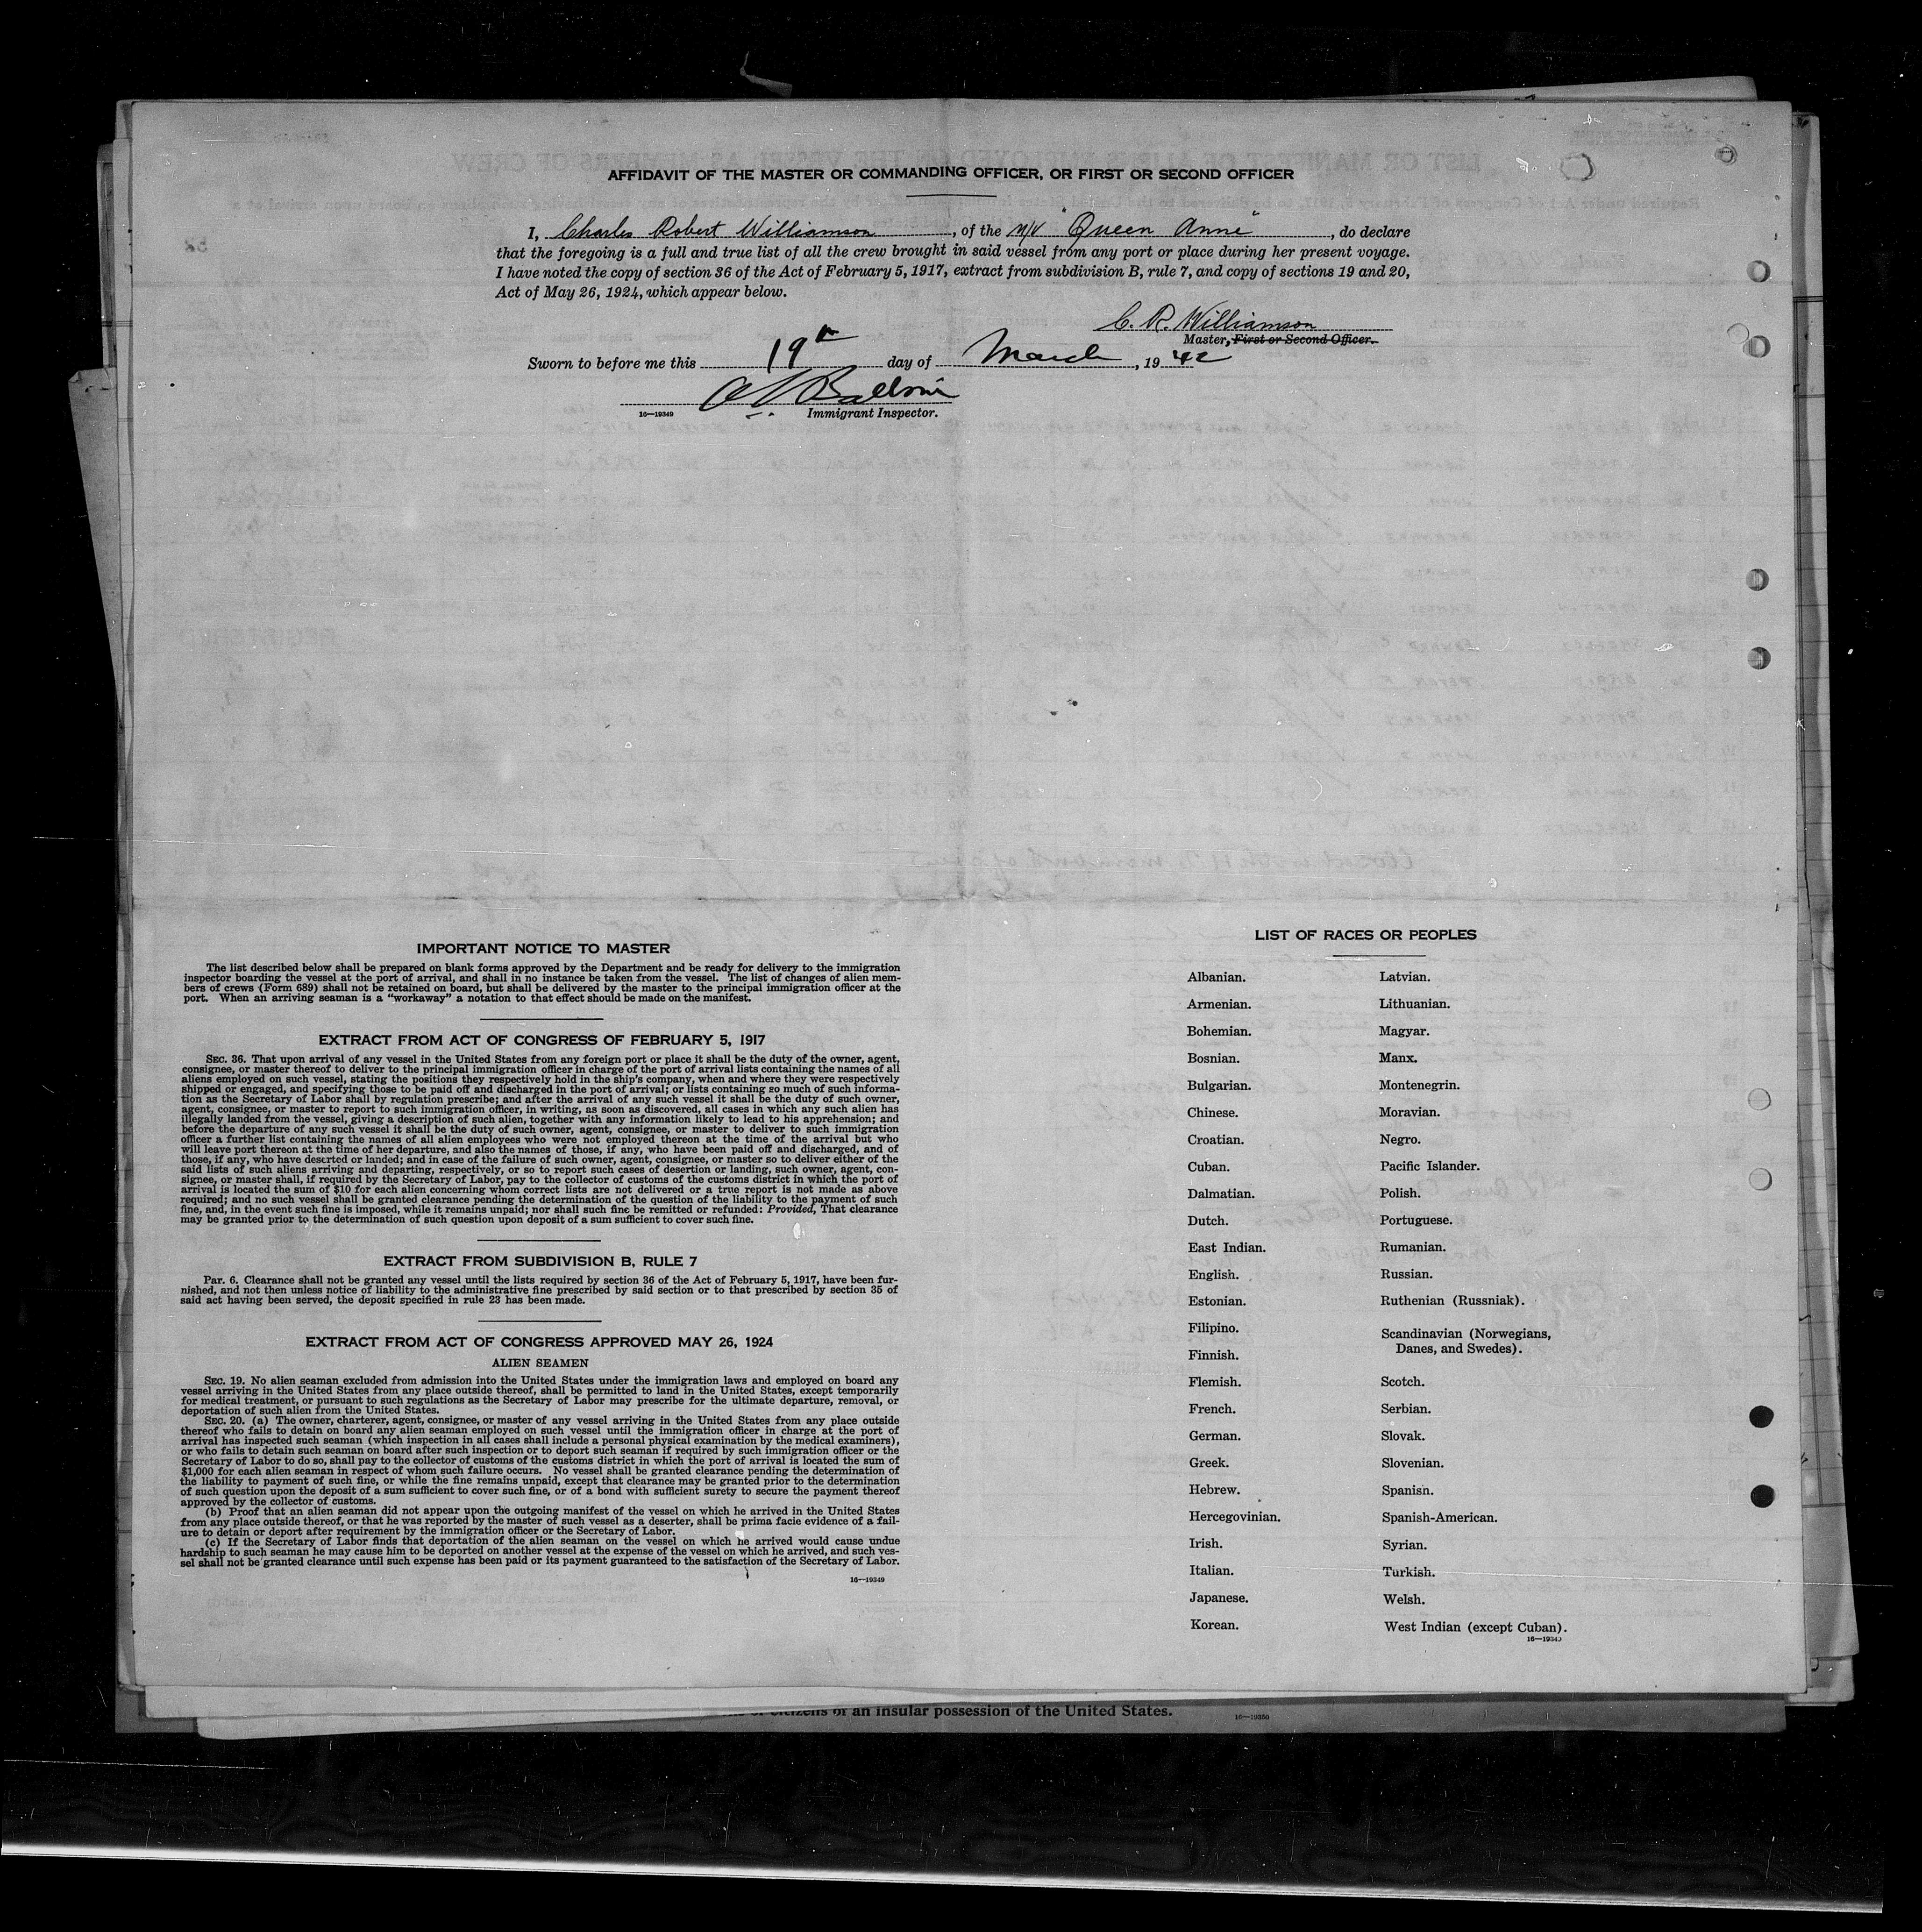 AFFIDAVIT OF THE MASTER OR COMMANDING OFFICER, OR FIRST OR SECOND OFFICER
I, Charles Robert Williamson, of the M/V "Queen Anne", do declare
that the foregoing is a full and true list of all the crew brought in said vessel from any port or place during her present voyage.
I have noted the copy of section 36 of the Act of February 5, 1917, extract from subdivision B, rule 7, and copy of sections 19 and 20,
Act of May 26, 1924, which appear below.
C. R. Williamson
Master, First or Second Officer.
Sworn to before me this 19th day of March, 1942
16—19349 Immigrant Inspector.
IMPORTANT NOTICE TO MASTER
The list described below shall be prepared on blank forms approved by the Department and be ready for delivery to the immigration
inspector boarding the vessel at the port of arrival, and shall in no instance be taken from the vessel. The list of changes of alien mem-
bers of crews (Form 689) shall not be retained on board, but shall be delivered by the master to the principal immigration officer at the
port. When an arriving seaman is a "workaway" a notation to that effect should be made on the manifest.
EXTRACT FROM ACT OF CONGRESS OF FEBRUARY 5, 1917
SEC. 36. That upon arrival of any vessel in the United States from any foreign port or place it shall be the duty of the owner, agent,
consignee, or master thereof to deliver to the principal immigration officer in charge of the port of arrival lists containing the names of all
aliens employed on such vessel, stating the positions they respectively hold in the ship's company, when and where they were respectively
shipped or engaged, and specifying those to be paid off and discharged in the port of arrival; or lists containing so much of such informa-
tion as the Secretary of Labor shall by regulation prescribe; and after the arrival of any such vessel it shall be the duty of such owner,
agent, consignee, or master to report to such immigration officer, in writing, as soon as discovered, all cases in which any such alien has
illegally landed from the vessel, giving a description of such alien, together with any information likely to lead to his apprehension; and
before the departure of any such vessel it shall be the duty of such owner, agent, consignee, or master to deliver to such immigration
officer a further list containing the names of all alien employees who were not employed thereon at the time of the arrival but who
will leave port thereon at the time of her departure, and also the names of those, if any, who have been paid off and discharged, and of
those, if any, who have deserted or landed; and in case of the failure of such owner, agent, consignee, or master so to deliver either of the
said lists of such aliens arriving and departing, respectively, or so to report such cases of desertion or landing, such owner, agent, con-
signee, or master shall, if required by the Secretary of Labor, pay to the collector of customs of the customs district in which the port of
arrival is located the sum of $10 for each alien concerning whom correct lists are not delivered or a true report is not made as above
required; and no such vessel shall be granted clearance pending the determination of the question of the liability to the payment of such
fine, and, in the event such fine is imposed, while it remains unpaid; nor shall such fine be remitted or refunded: Provided, That clearance
may be granted prior to the determination of such question upon deposit of a sum sufficient to cover such fine.
EXTRACT FROM SUBDIVISION B, RULE 7
Par. 6. Clearance shall not be granted any vessel until the lists required by section 36 of the Act of February 5, 1917, have been fur-
nished, and not then unless notice of liability to the administrative fine prescribed by said section or to that prescribed by section 35 of
said act having been served, the deposit specified in rule 23 has been made.
EXTRACT FROM ACT OF CONGRESS APPROVED MAY 26, 1924
ALIEN SEAMEN
SEC. 19. No alien seaman excluded from admission into the United States under the immigration laws and employed on board any
vessel arriving in the United States from any place outside thereof, shall be permitted to land in the United States, except temporarily
for medical treatment, or pursuant to such regulations as the Secretary of Labor may prescribe for the ultimate departure, removal, or
deportation of such alien from the United States.
SEC. 20. (a) The owner, charterer, agent, consignee, or master of any vessel arriving in the United States from any place outside
thereof who fails to detain on board any alien seaman employed on such vessel until the immigration officer in charge at the port of
arrival has inspected such seaman (which inspection in all cases shall include a personal physical examination by the medical examiners),
or who fails to detain such seaman on board after such inspection or to deport such seaman if required by such immigration officer or the
Secretary of Labor to do so, shall pay to the collector of customs of the customs district in which the port of arrival is located the sum of
$1,000 for each alien seaman in respect of whom such failure occurs. No vessel shall be granted clearance pending the determination of
the liability to payment of such fine, or while the fine remains unpaid, except that clearance may be granted prior to the determination
of such question upon the deposit of a sum sufficient to cover such fine, or of a bond with sufficient surety to secure the payment thereof
approved by the collector of customs.
(b) Proof that an alien seaman did not appear upon the outgoing manifest of the vessel on which he arrived in the United States
from any place outside thereof, or that he was reported by the master of such vessel as a deserter, shall be prima facie evidence of a fail-
ure to detain or deport after requirement by the immigration officer or the Secretary of Labor.
(c) If the Secretary of Labor finds that deportation of the alien seaman on the vessel on which he arrived would cause undue
hardship to such seaman he may cause him to be deported on another vessel at the expense of the vessel on which he arrived, and such ves-
sel shall not be granted clearance until such expense has been paid or its payment guaranteed to the satisfaction of the Secretary of Labor.
16—19349
LIST OF RACES OR PEOPLES
Albanian.
Armenian.
Bohemian.
Bosnian.
Bulgarian.
Chinese.
Croatian.
Cuban.
Dalmatian.
Dutch.
East Indian.
English.
Estonian.
Filipino.
Finnish.
Flemish.
French.
German.
Greek.
Hebrew.
Hercegovinian.
Irish.
Italian.
Japanese.
Korean.
Latvian.
Lithuanian.
Magyar.
Manx.
Montenegrin.
Moravian.
Negro.
Pacific Islander.
Polish.
Portuguese.
Rumanian.
Russian.
Ruthenian (Russniak).
Scandinavian (Norwegians,
Danes, and Swedes).
Scotch.
Serbian.
Slovak.
Slovenian.
Spanish.
Spanish-American.
Syrian.
Turkish.
Welsh.
West Indian (except Cuban).
16—19349
citizens of an insular possession of the United States.
16—19350